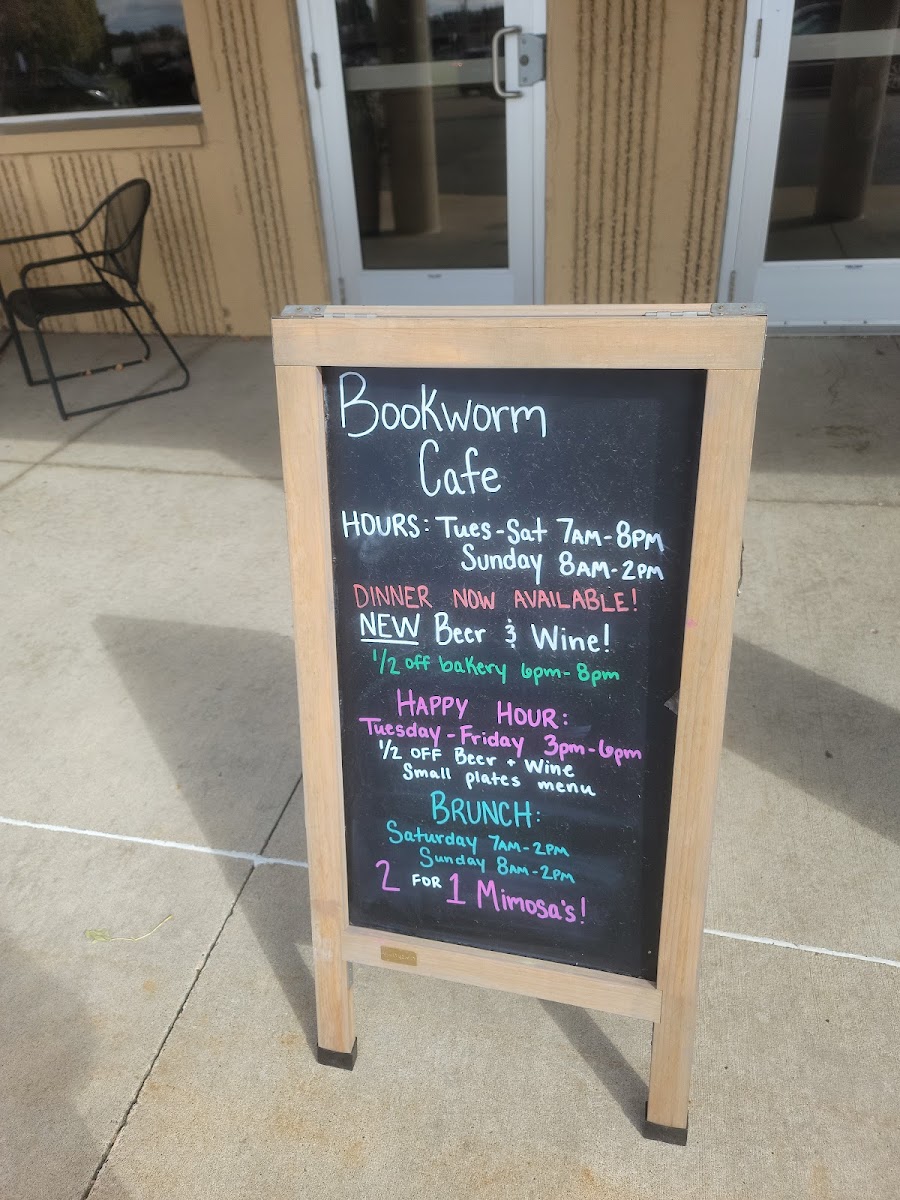 Bookworm
Cafe
HOURS: Tues-Sat 7AM-8PM
Sunday 8AM-2PM
DINNER NOW AVAILABLE!
NEW Beer & Wine!
1/2 off bakery 6pm-8pm
HAPPY HOUR:
Tuesday-Friday 3pm-6pm
1/2 OFF Beer + Wine
Small plates menu
BRUNCH:
Saturday 7AM-2PM
Sunday 8AM-2PM
2 FOR 1 Mimosa's!